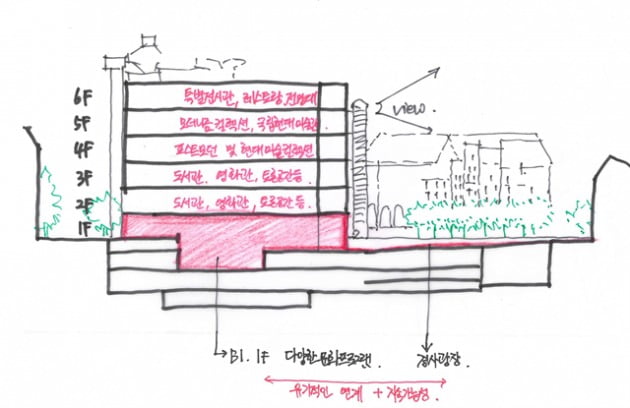 6F 특별전시관, 레스토랑, 전망대
view.
5F 모더니즘 컬렉션, 국립현대미술관
4F 포스트모던 및 현대미술컬렉션
3F 도서관. 영화관, 토론공간 등
2F 도서관, 영화관, 토론공간 등.
1F
B1. 1F 다양한 문화프로그램.
경사광장.
유기적인 연계 + 지속가능성